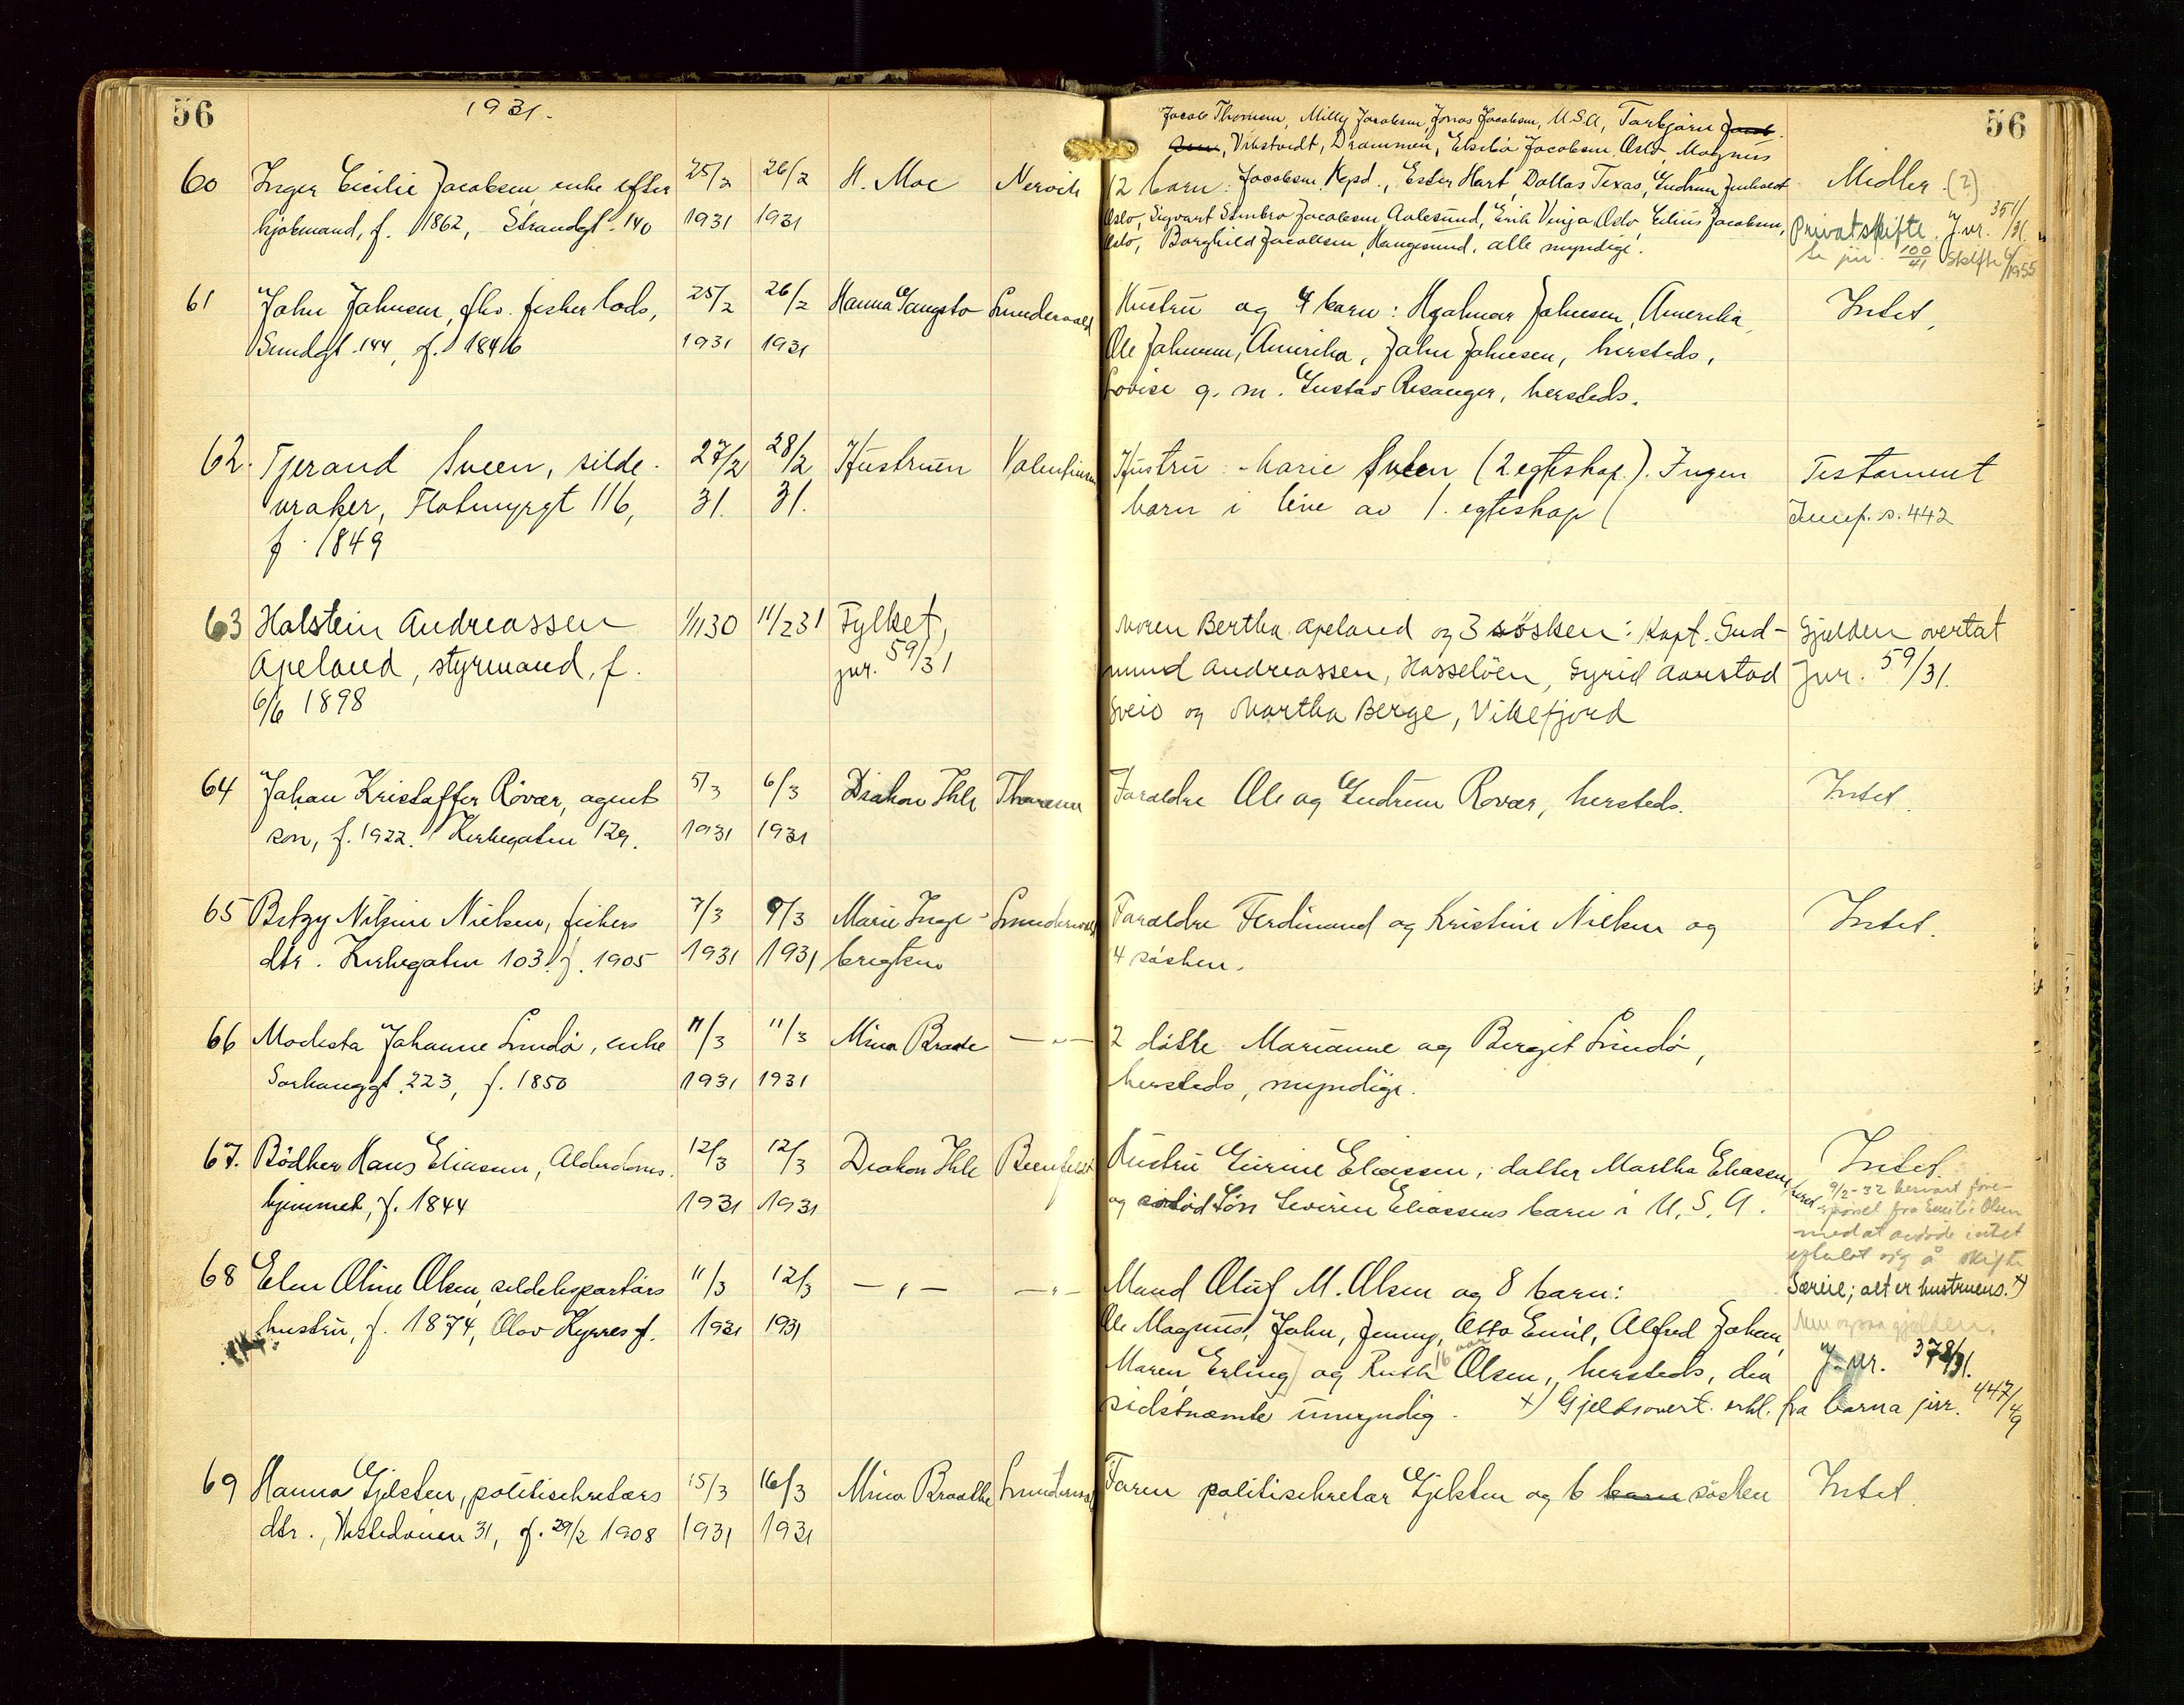 56
1931.
60 Inger Cecilie Jacobsen, enke efter 25/2 26/2 H. Moe Nervik
kjøbmand, f. 1862, Strandgt. 140 1931 1931
61 John Johnsen, fhv. fisker lods, 25/2 26/2 Hanna Gangstø
Sundgt. 144, f. 1846 1931 1931
62. Tjerand Sveen, silde- 27/2 28/2 Hustruen Valentinsen
vraker, Flotmyrgt 116, 31. 31.
f. 1849
63 Halstein Andreassen 1/1130 11/231 Fylket,
Apeland, styrmand, f. jnr. 59/31
6/6 1898
64 Johan Kristoffer Røvær, agent 5/3 6/3 Diakon Ihle Thorsen
søn, f. 1922. Kirkegaten 129. 1931 1931
65 Betzy Nilsine Nielsen, fiskers 7/3 9/3 Marie Inge-
dtr. Kirkegaten 103. f. 1905 1931 1931 brigtsen
66 Modesta Johanne Lindø, enke 11/3 11/3 Mina Braate — " —
Sørhauggt. 223, f. 1850 1931 1931
67. Bødker Hans Eliassen, Alderdoms- 12/3 12/3 Diakon Ihle
hjemmet, f. 1844 1931 1931
68 Elen Oline Olsen, sildeksportørs 11/3 12/3 — " — — " —
hustru, f. 1874, Olav Kyrresgt. 1931 1931
69 Hanna Gjelsten, politisekretærs 15/3 16/3 Mina Braathe
dtr., 31, f. 29/2 1908 1931 1931
56
Jacob Thomsen, Milly Jacobsen, Jonas Jacobsen, U.S.A, Torbjørn Jacob-
Vikstvedt, Drammen, Jacobsen, Oslo, Magnus
12 barn: Jacobsen, Kpsd., Ester Hart, Dallas Texas, Gudrun Middler (?)
Oslo, Sigvart Jacobsen Aalesund, Erik Vinja Oslo, Jacobsen, Privatskifte. J.nr. 351/31.
Oslo, Borghild Jacobsen, Haugesund, alle myndige. Se jnr. 100/41 Skifte 4/1955
Hustru og 4 barn: Hjalmar Johnsen, Amerika, Intet,
Ole Johnsen, Amerika, John Johnsen, hersteds,
Lovise g. m. Gustav Risanger, hersteds.
Hustru: Marie Sveen (2 egteskap). Ingen Testament
barn i live av 1. egteskap ( s. 442
Moren Bertha Apeland og 3 søsken: Kapt. Gud- Gjelden overtat
mund Andreassen, Hasseløen, Syrid Aarstad Jnr. 59/31.
Sveio og Martha Berge, Vikefjord
Foreldre Ole og Gudrun Røvær, hersteds. Intet.
Foreldre Ferdinand og Kristine Nielsen og Intet.
4 søsken.
2 døtre Marianne og Birgit Lindø,
hersteds, myndige.
Hustru Gurine Eliassen, datter Martha Eliassen, herst. Intet.
og avdød søn Severin Eliassens barn i U.S.A. 9/2-32 besvart fore-
spørsel fra Emilie Olsen
med at avdøde intet
efterlot sig å skifte
Mand Oluf M. Olsen og 8 barn: Særeie; alt er hustruens. x)
Ole Magnus, John, Jenny, Otto Emil, Alfred Johan, Men ogsaa gjelden.
Maren, Erling og Ruth 16 aar Olsen, hersteds, den J.nr. 378/31.
sidstnævnte umyndig. x) Gjeldsovert. erkl. fra barna jnr. 447/49
Faren politisekretær Gjelsten og 6 barn søsken Intet.